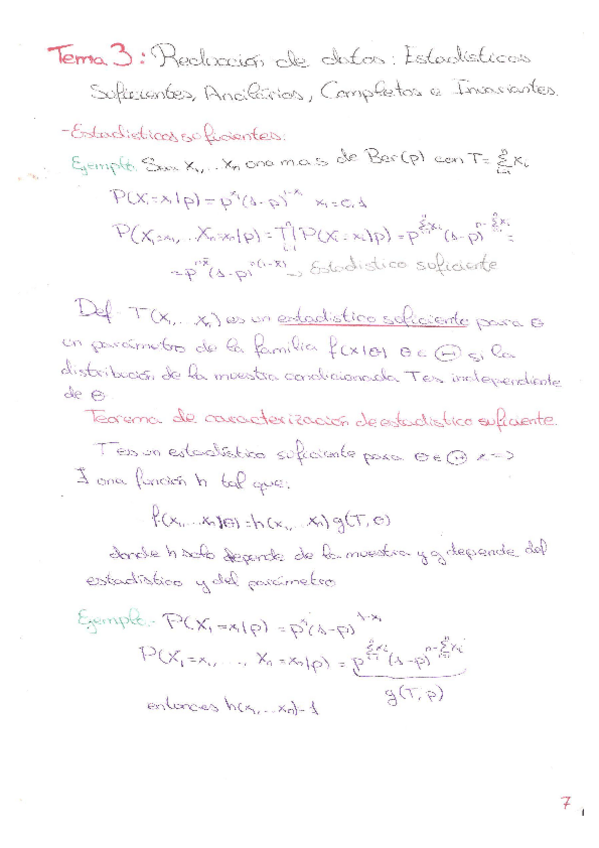 Tema 3: Reducción de datos: Estadísticos
Suficientes, Ancilarios, Completos e Invariantes.
-Estadísticos suficientes:
Ejemplo: Sean x₁,... xₙ una m.a.s de Ber(p) con T = Σⁿᵢ₌₁ xᵢ
P(Xᵢ=xᵢ|p) = p^xᵢ (1-p)^(1-xᵢ) xᵢ=0,1
P(X₁=x₁,.. Xₙ=xₙ|p) = Πⁿᵢ₌₁ P(Xᵢ=xᵢ|p) = p^(Σⁿᵢ₌₁ xᵢ) (1-p)^(n-Σⁿᵢ₌₁ xᵢ) =
= p^(n x̄) (1-p)^(n(1-x̄)) → Estadístico suficiente
Def.- T(x₁,.. xₙ) es un estadístico suficiente para θ
un parámetro de la familia f(x|θ) θ∈Θ si la
distribución de la muestra condicionada T es independiente
de θ.
Teorema de caracterización de estadístico suficiente.
T es un estadístico suficiente para θ∈Θ <=>
∃ una función h tal que:
f(x₁,.. xₙ|θ) = h(x₁,.. xₙ) g(T, θ)
donde h solo depende de la muestra y g depende del
estadístico y del parámetro
Ejemplo.- P(X₁=x₁|p) = p^x₁ (1-p)^(1-x₁)
P(X₁=x₁,..., Xₙ=xₙ|p) = p^(Σⁿᵢ₌₁ xᵢ) (1-p)^(n-Σⁿᵢ₌₁ xᵢ)
g(T, p)
entonces h(x₁,.. xₙ)=1
7